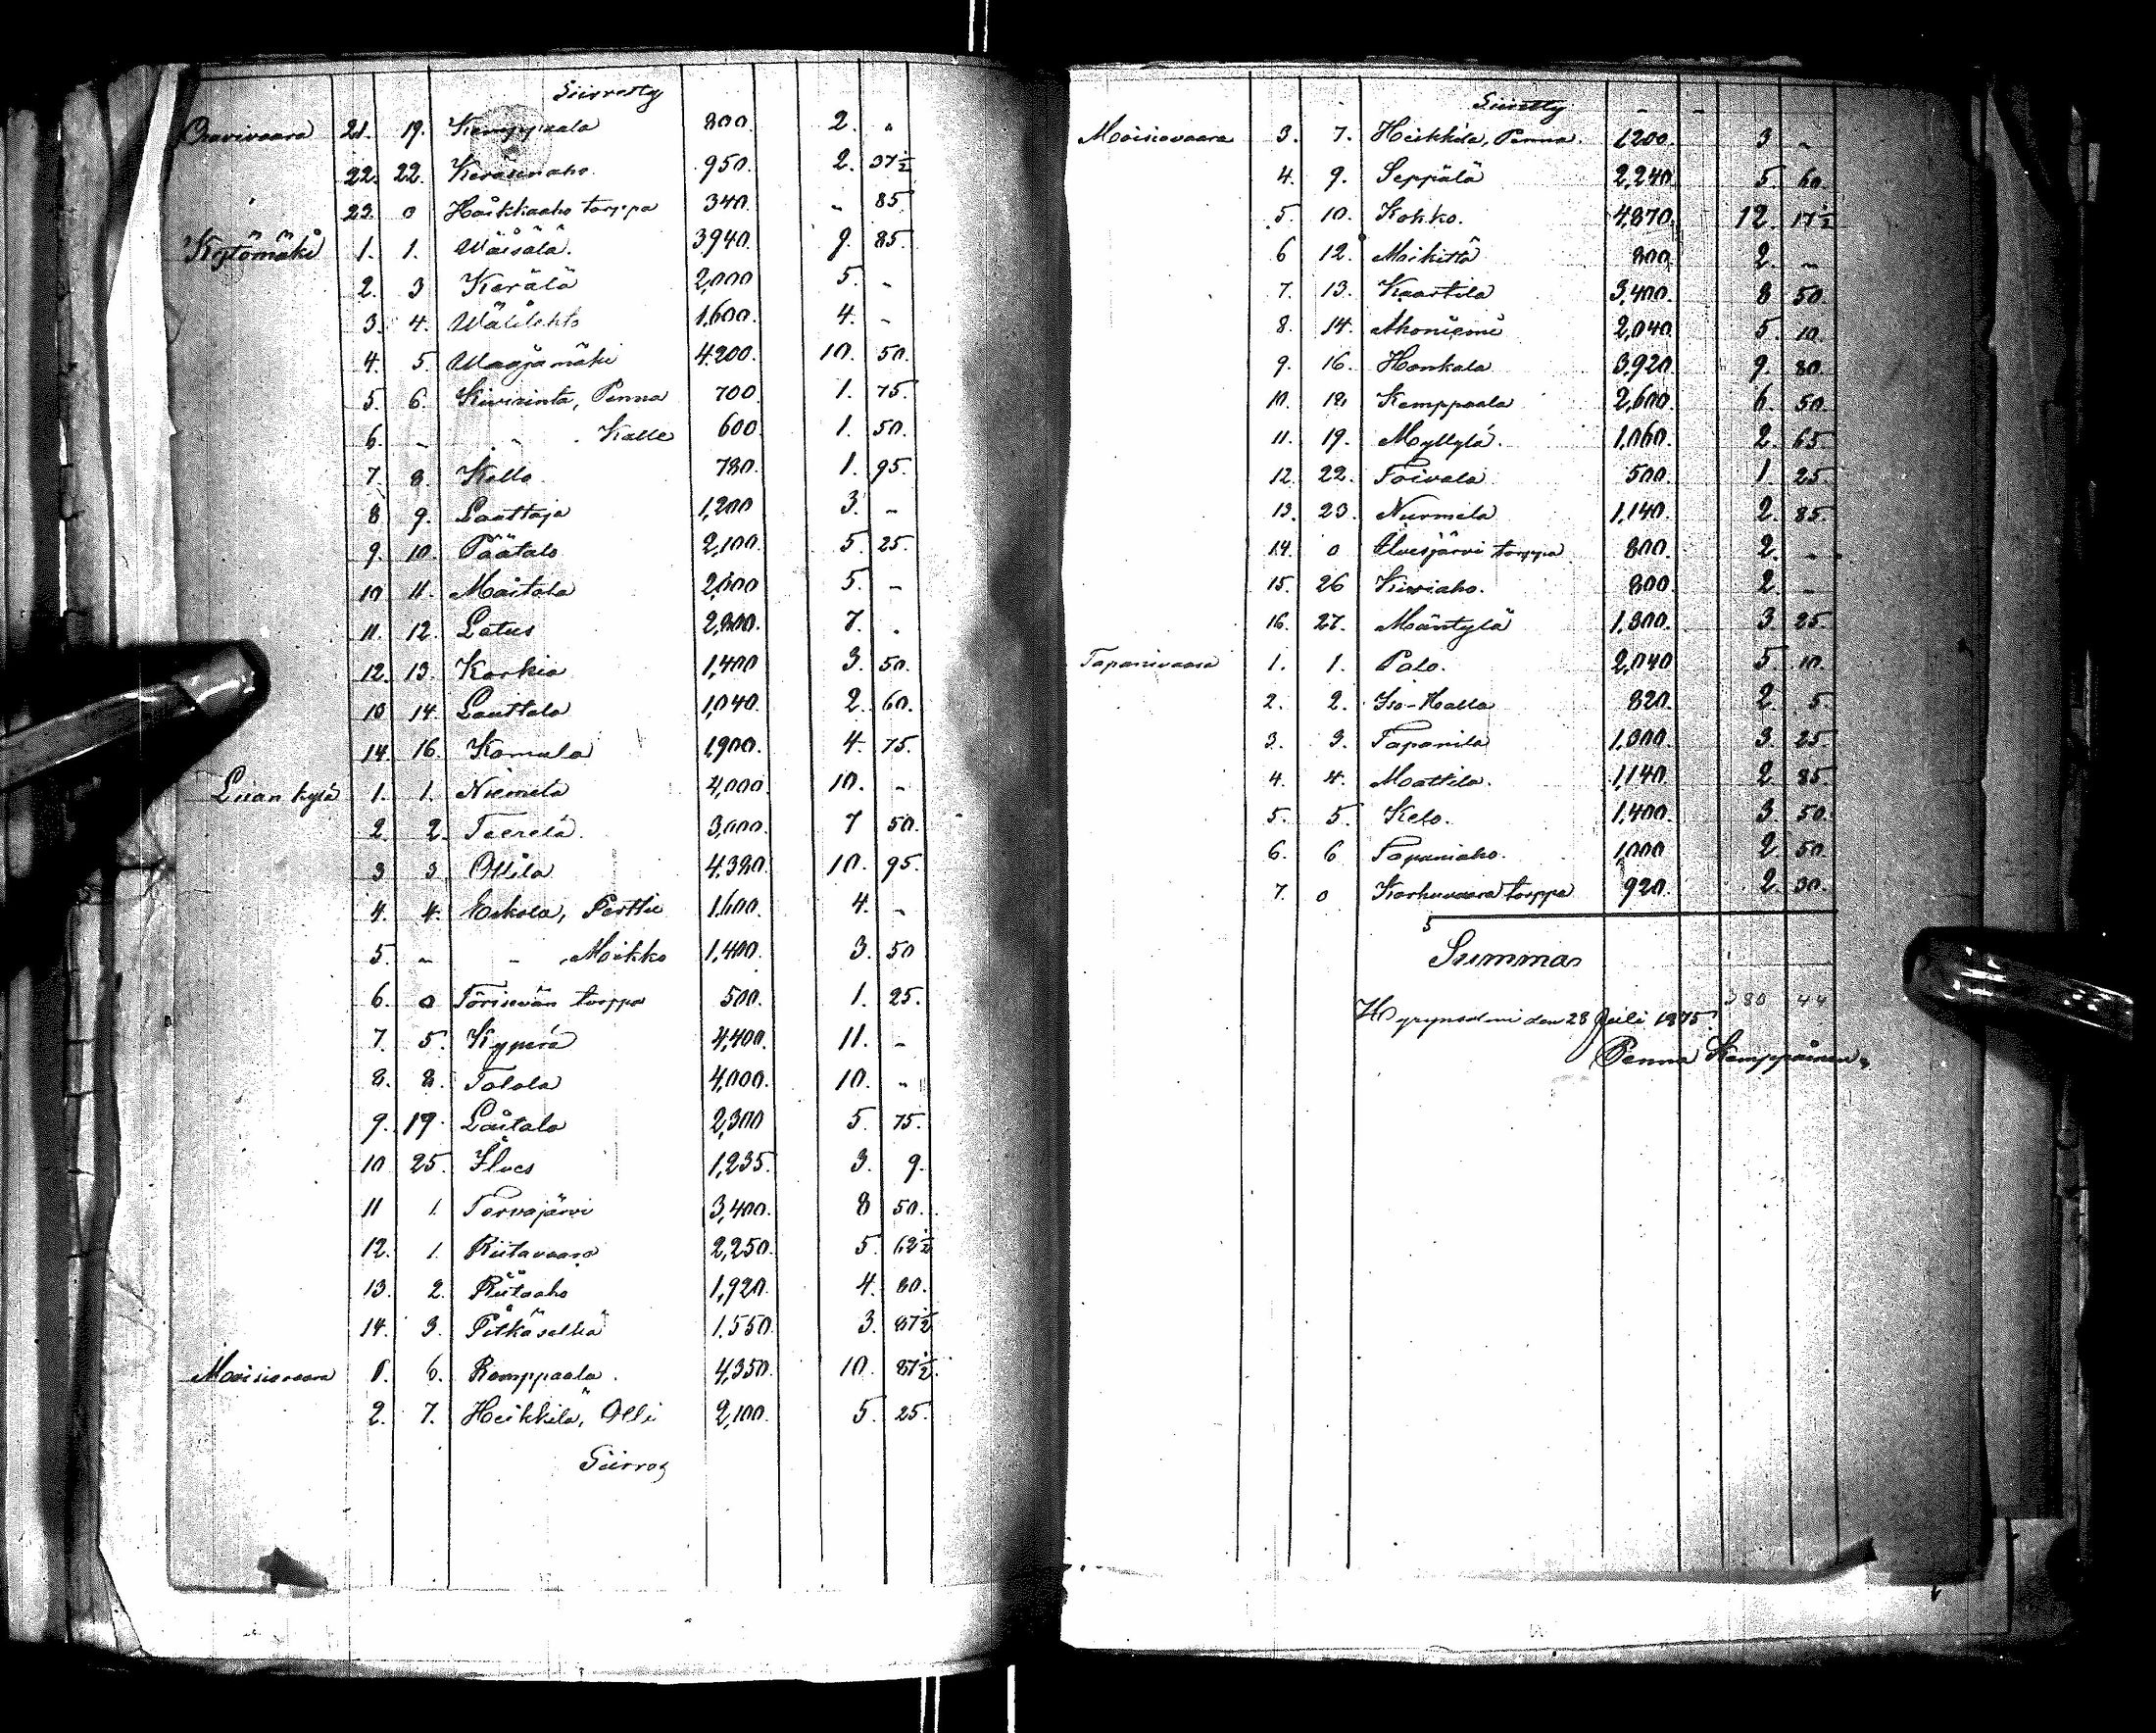 Siirretty
Oravivaara 21. 19. Kemppaala 800. 2. "
22. 22. Keräsenaho 950. 2. 37½
23. 0 Haikkaaho torppa 340. - 85.
Kytömäki 1. 1. Wäisälä. 3940. 9. 85.
2. 3 Kerälä 2,000 5. -
3. 4. Wälilehto 1,600. 4. -
4. 5. Maajamäki 4.200. 10. 50.
5. 6. Kivirinta, Penna 700. 1. 75.
6. - - Kalle 600. 1. 50.
7. 8. Kello 780. 1. 95.
8 9. Lauttaja 1,200 3. -
9. 10. Päätalo 2,100. 5. 25.
10 11. Maitala 2,000 5. -
11. 12. Latus 2,800. 7. .
12. 13. Karkia 1,400 3. 50.
13 14. Lauttala 1,040. 2. 60.
14. 16. Komula 1,900. 4. 75.
Liian kylä 1. 1. Niemelä 4,000. 10. -
2. 2. Teerelä. 3,000. 7 50.
3 3. Ollila 4.380. 10. 95.
4. 4. Eskola, Perttu 1,600. 4. -
5. - - Moikko 1,400. 3. 50
6. 0 Törisevän torppa 500. 1. 25.
7. 5. Kyperä 4,400. 11. -
8. 8. Tolola 4,000. 10. -
9. 19. Laitala 2,300 5. 75.
10 25. Ilves 1,235. 3. 9.
11 1. Tervajärvi 3,400. 8 50.
12. 1. Riitavaara 2,250. 5. 62½
13. 2. Riitaaho 1,920. 4. 80.
14. 3. Pitkäselkä 1.550. 3. 87½
Moisiovaara 1. 6. Komppaala. 4,350. 10. 87½.
2. 7. Heikkilä, Olli 2,100. 5. 25.
Siirros
Siirretty - -
Moisiovaara 3. 7. Heikkilä, Penna. 1200. 3 -
4. 9. Seppälä 2,240. 5. 60.
5. 10. Kohko. 4,870. 12. 17½
6 12. Mikittä 800. 2. -
7. 13. Kaartila 3,400. 8 50.
8. 14. Ahoniemi 2,040. 5. 10.
9. 16. Honkala 3,920. 9. 80.
10. 18. Kemppaala 2,600. 6. 50.
11. 19. Myllylä. 1,060. 2. 65.
12. 22. Toivala 500. 1. 25.
13. 23. Nurmela 1,140. 2. 85.
14. 0 Ilvesjärvi torppa 800. 2. -
15. 26 Kiviaho. 800. 2. -
16. 27. Mäntylä 1,300. 3. 25.
Tapanivaara 1. 1. Palo. 2,040 5. 10.
2. 2. Iso-Halla 820. 2. 5.
3. 3. Tapanila 1,300. 3. 25.
4. 4. Mattila. 1,140. 2 85.
5. 5. Kelo. 1,400. 3. 50.
6. 6 Tapaniaho. 1,000 2. 50.
7. 0 Karhuvaara torppa 920. 2. 30.
Summa
380 44
Hyrynsalmi den 28 Juli 1875.
Penna Kemppainen